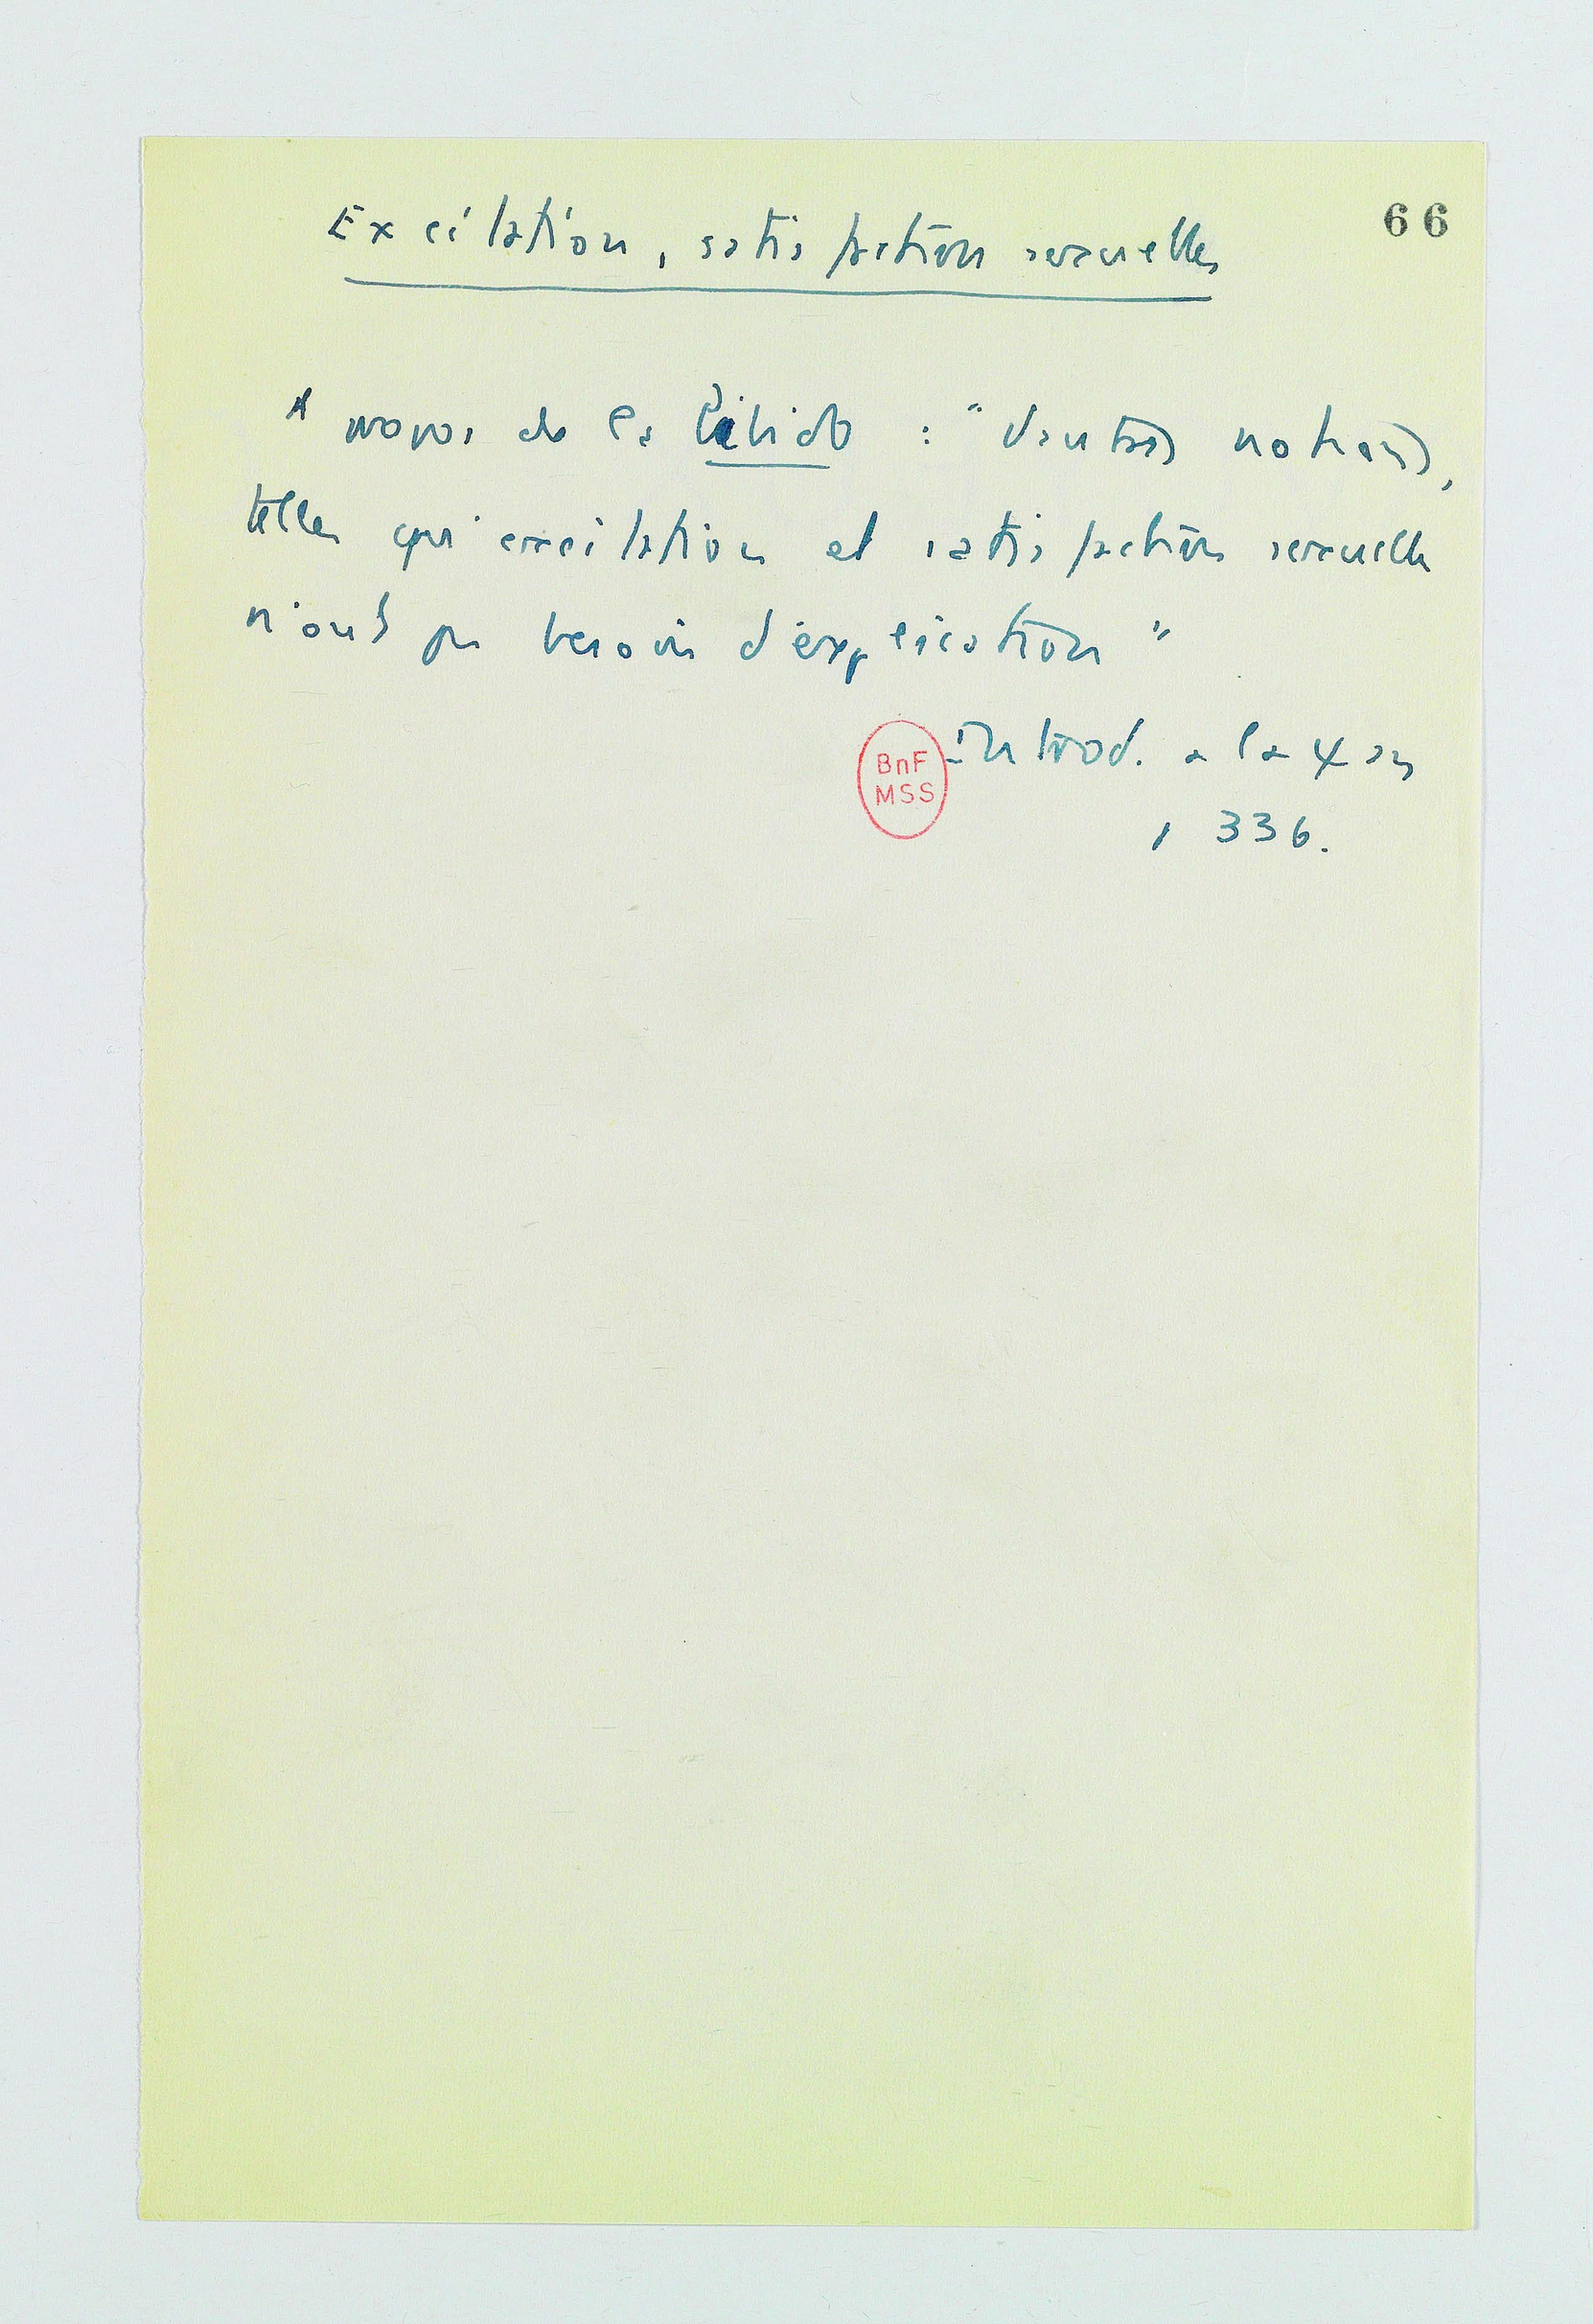 66
Excitation, satisfaction sexuelles
A propos de la libido : "d'autres notions,
telles qu'excitation et satisfaction sexuelle
n'ont pas besoin d'explication"
Introd. a la ψan
p 336.
BnF
MSS